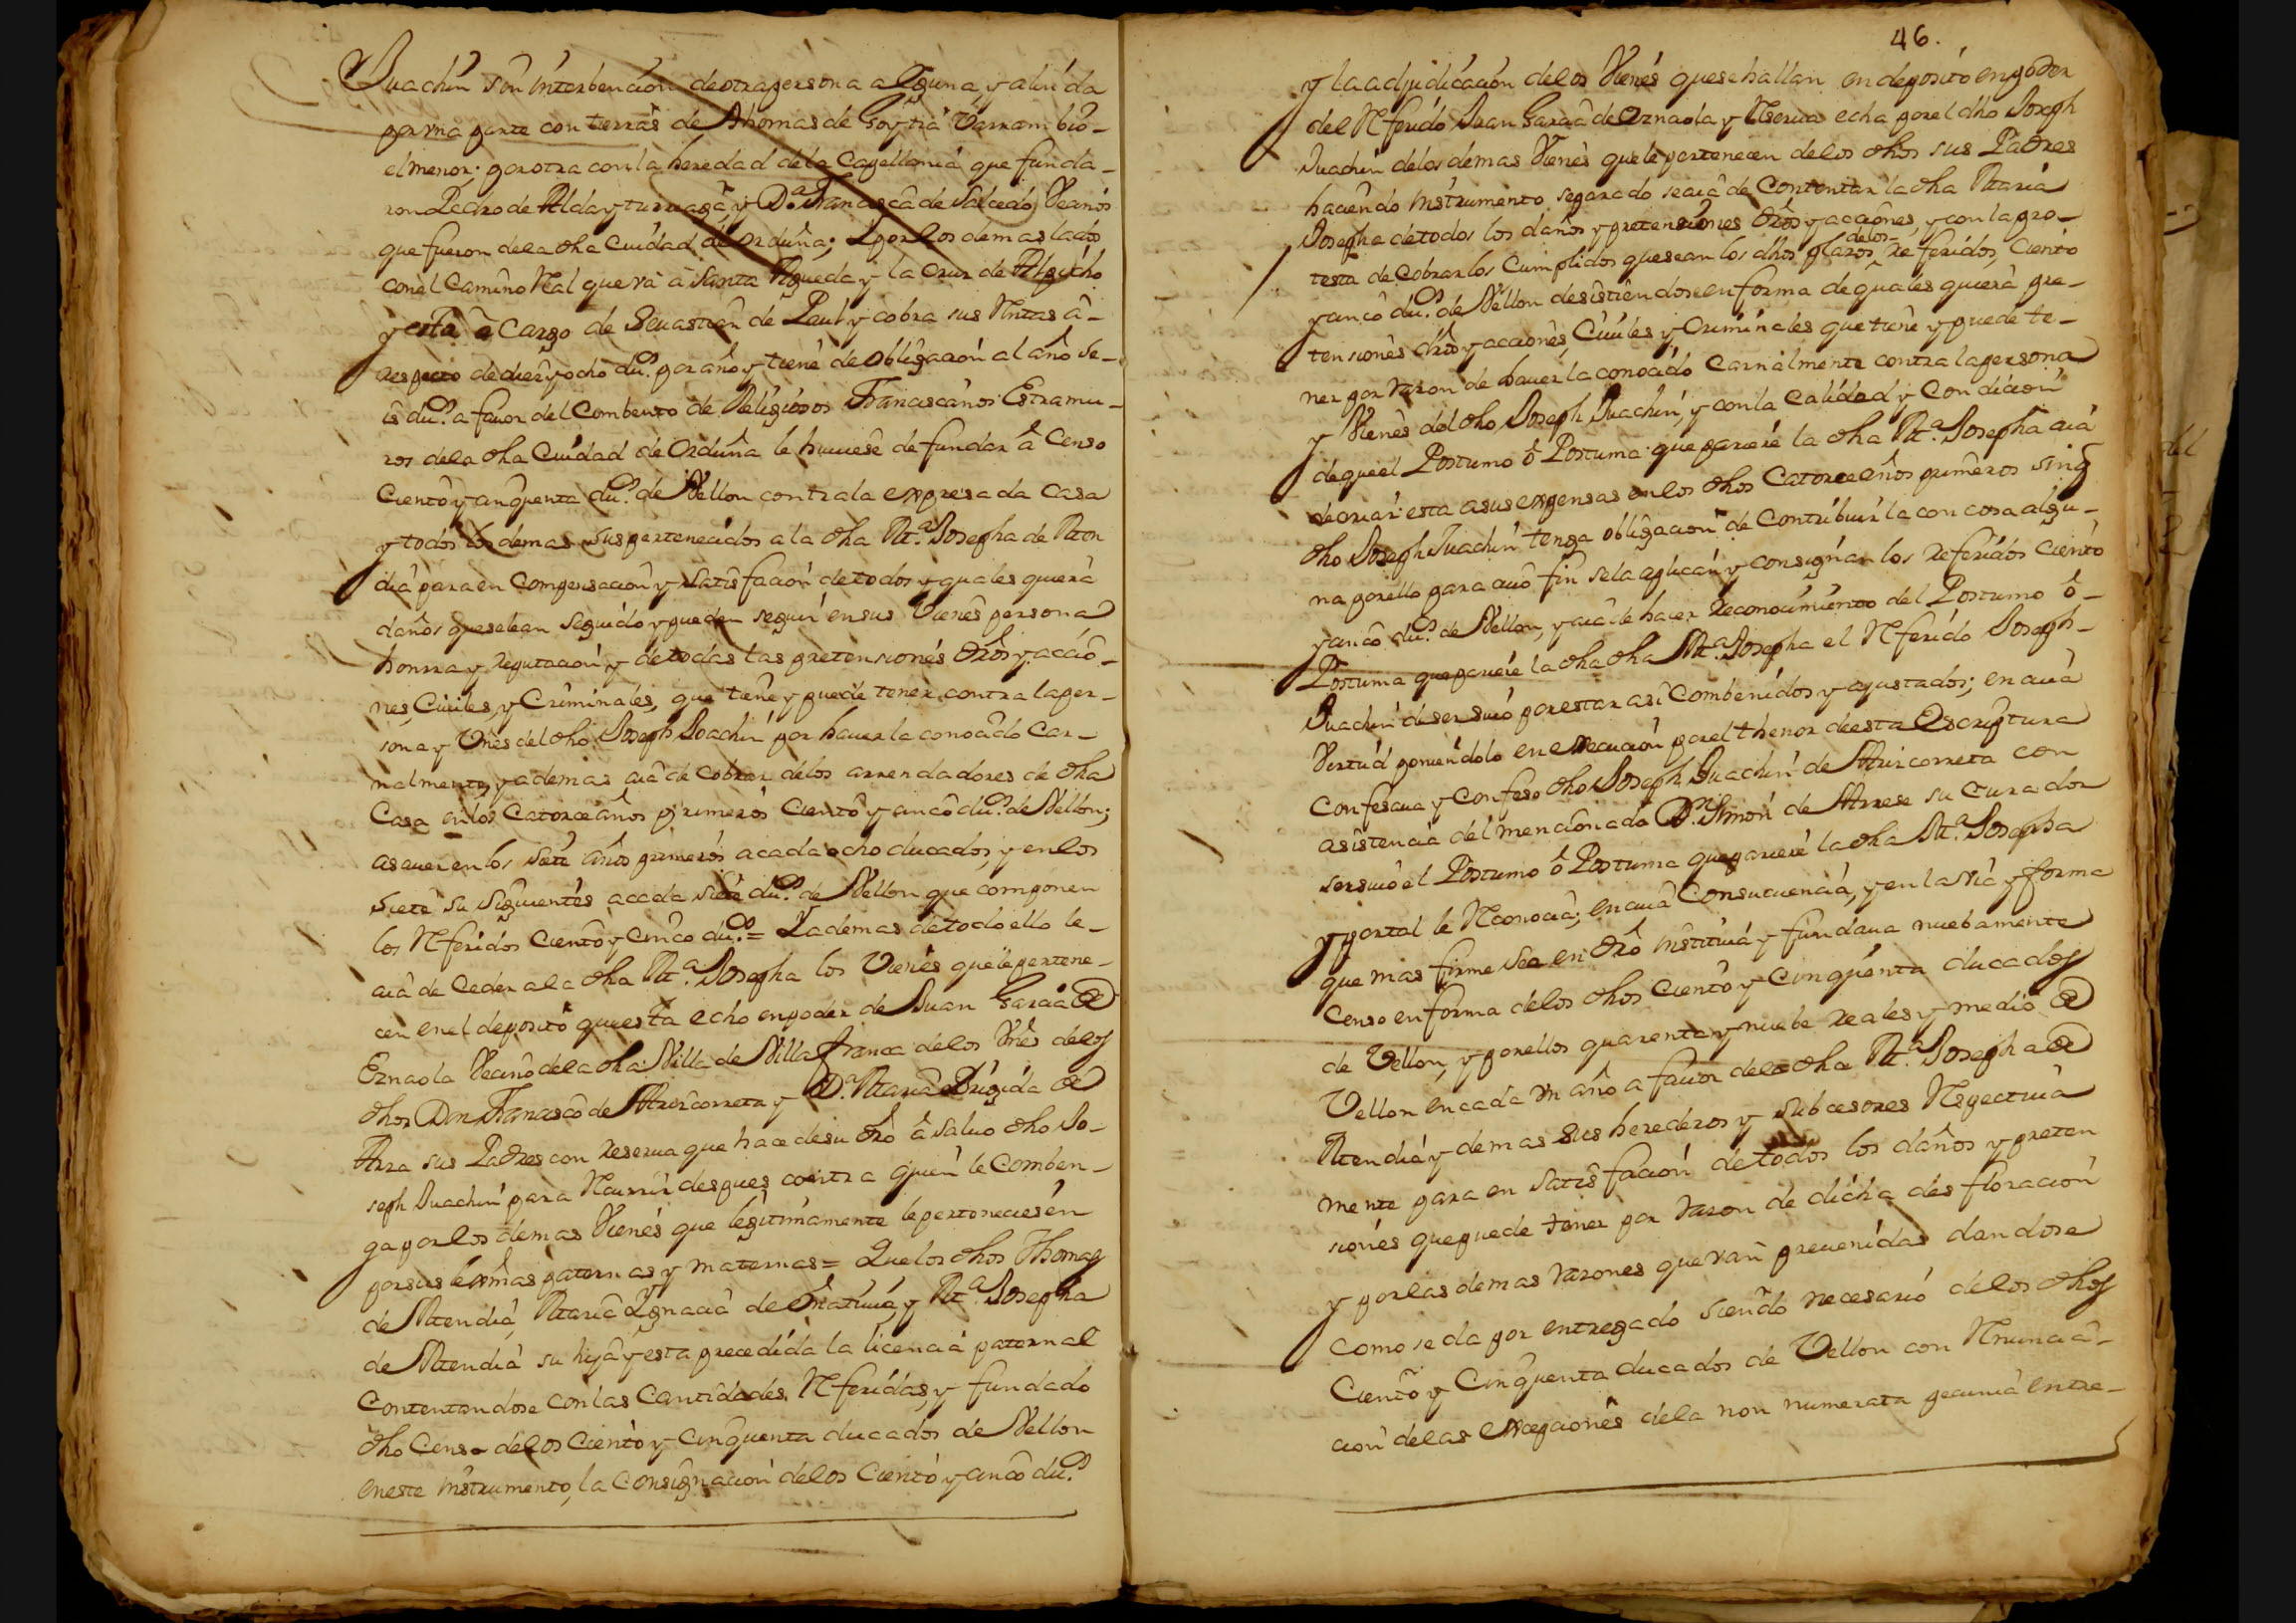 Juachin sin interbencion de otra persona alguna, y alinda
por vna parte con tierras de Thomas de Goytia Barrambio
el menor; por otra con la heredad de la Capellania que funda-
ron Pedro de Aldayturriaga y D.ª Francisca de Salcedo Vecinos
que fueron de la dha Ciudad de Orduña; Y por los demas lados
con el Camino Real que va à Santa Agueda y la Cruz de
y està à Cargo de Sevastian de Paul y cobra sus Rentas â
respecto de diez y ocho du.ˢ por año y tiene de obligacion al año se-
is du.ˢ a favor del Combento de Religiosos Franciscanos Estramu-
ros de la dha Ciudad de Orduña le huviese de fundar â Censo
Ciento y cinquenta du.ˢ de Vellon contra la expresada Casa
y todos los demas sus pertenecidos a la dha M.ª Josepha de Men
dia para en Compensacion y satisfacion de todos y quales quiera
daños que se le an seguido y pueden seguir en sus Vienes persona
honrra y reputacion y de todas las pretensiones dros y accio-
nes, Civiles, y Criminales, que tiene y puede tener contra la per-
sona y Vnes del dho Joseph Joachin por haverla conocido Car-
nalmente, y ademas avia de cobrar de los arrendadores de dha
Casa en los Catorce años primeros Ciento y cinco du.ˢ de Vellon;
a saver en los siete años primeros a cada ocho ducados, y en los
siete su siguientes a cada siete du.ˢ de Vellon que componen
los Referidos Ciento y Cinco du.ˢ = Y ademas de todo ello le
avia de Ceder a la dha M.ª Josepha los Vienes que le pertene-
cen en el deposito que esta echo en poder de Juan Garcia de
Eznaola Vecino de la dha Villa de Villafranca de los Vnes de los
dhos Don Francisco de Arricorreta y D.ª Maria Brigida de
Arza sus Padres con reserva que hace de su dro â salvo dho Jo-
seph Juachin para Recurrir despues contra quien le Comben-
ga por los demas Vienes que legitimamente le perteneciesen
por sus lexmas paternas y maternas = Que los dhos Thomas
de Mendia, Maria Ygnacia de y M.ª Josepha
de Mendia su hija y esta precedida la licencia paternal
Contentandose con las Cantidades Referidas, y fundado
dho Censo de los Ciento y Cinquenta ducados de Vellon
en este instrumento, la Consignacion de los Ciento y cinco du.ˢ
46.
y la adjudicacion de los Vienes que se hallan en deposito en poder
del Referido Juan Garcia de Oznaola y Reserva echa por el dho Joseph
Juachin de los demas Vienes que le pertenecen de los dhos sus Padres
haciendo instrumento separado se avia de Contentar la dha Maria
Josepha de todos los daños y pretensiones dros y acciones, y con la pro-
testa de Cobrar los Cumplidos que sean los dhos plazos de los referidos, Ciento
y cinco du.ˢ de Vellon desistiendose en forma de quales quiera pre-
tensiones dros y acciones, Civiles y Criminales que tiene y puede te-
ner por razon de haverla conocido Carnalmente contra la persona
y Vienes del dho Joseph Juachin, y con la Calidad y Condicion
de que el Postumo ô Postuma que pariere la dha M.ª Josepha avia
de criar esta a sus expensas en los dhos Catorce años primeros sin q̃
dho Joseph Juachin tenga obligacion de Contribuirla con cosa algu-
na por ello para cuio fin se la aplican y consignan los Referidos Ciento
y cinco du.ˢ de Vellon, y avia de hacer Reconocimiento del Postumo ô
Postuma que pariere la dha dha M.ª Josepha el Referido Joseph
Juachin de ser suio por estar asi Combenidos y ajustados; en cuia
Virtud poniendolo en execucion por el thenor de esta Escriptura
Confesava y Confeso dho Joseph Juachin de Arricorreta con
asistencia del mencionado D.ⁿ Simon de Arrese su Curador
ser suio el Postumo ô Postuma que pariere la dha M.ª Josepha
y por tal le Reconocia; en cuia Consucuencia, y en la via y forma
que mas firme sea en dro instituia y fundava nuebamente
Censo en forma de los dhos Ciento y Cinquenta ducados
de Vellon, y por ellos quarenta y nuebe reales y medio de
Vellon en cada vn año a favor de la dha M.ª Josepha de
Mendia y demas sus herederos y subcesores Respectiva
mente para en satisfacion de todos los daños y preten
siones que puede tener por razon de dicha desfloracion
y por las demas razones que van prevenidas dandose
Como se da por entregado siendo necesario de los dhos
Ciento y Cinquenta ducados de Vellon con Renuncia-
cion de las excepciones de la non numerata pecunia entre-